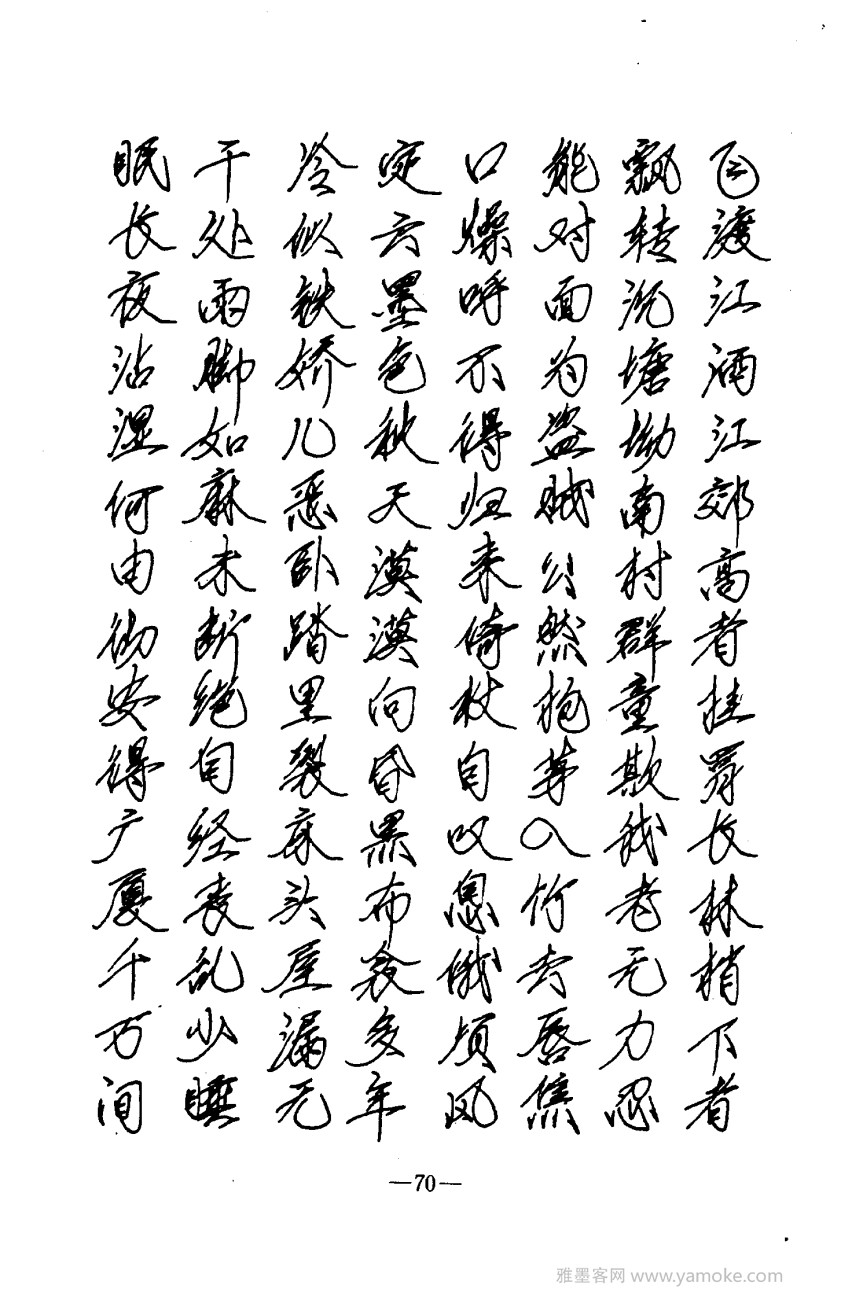 飞渡江洒江郊高者挂罥长林梢下者
飘转沉塘坳南村群童欺我老无力忍
能对面为盗贼公然抱茅入竹去唇焦
口燥呼不得归来倚杖自叹息俄顷风
定云墨色秋天漠漠向昏黑布衾多年
冷似铁娇儿恶卧踏里裂床头屋漏无
干处雨脚如麻未断绝自经丧乱少睡
眠长夜沾湿何由彻安得广厦千万间
—70—
雅墨客网 www.yamoke.com